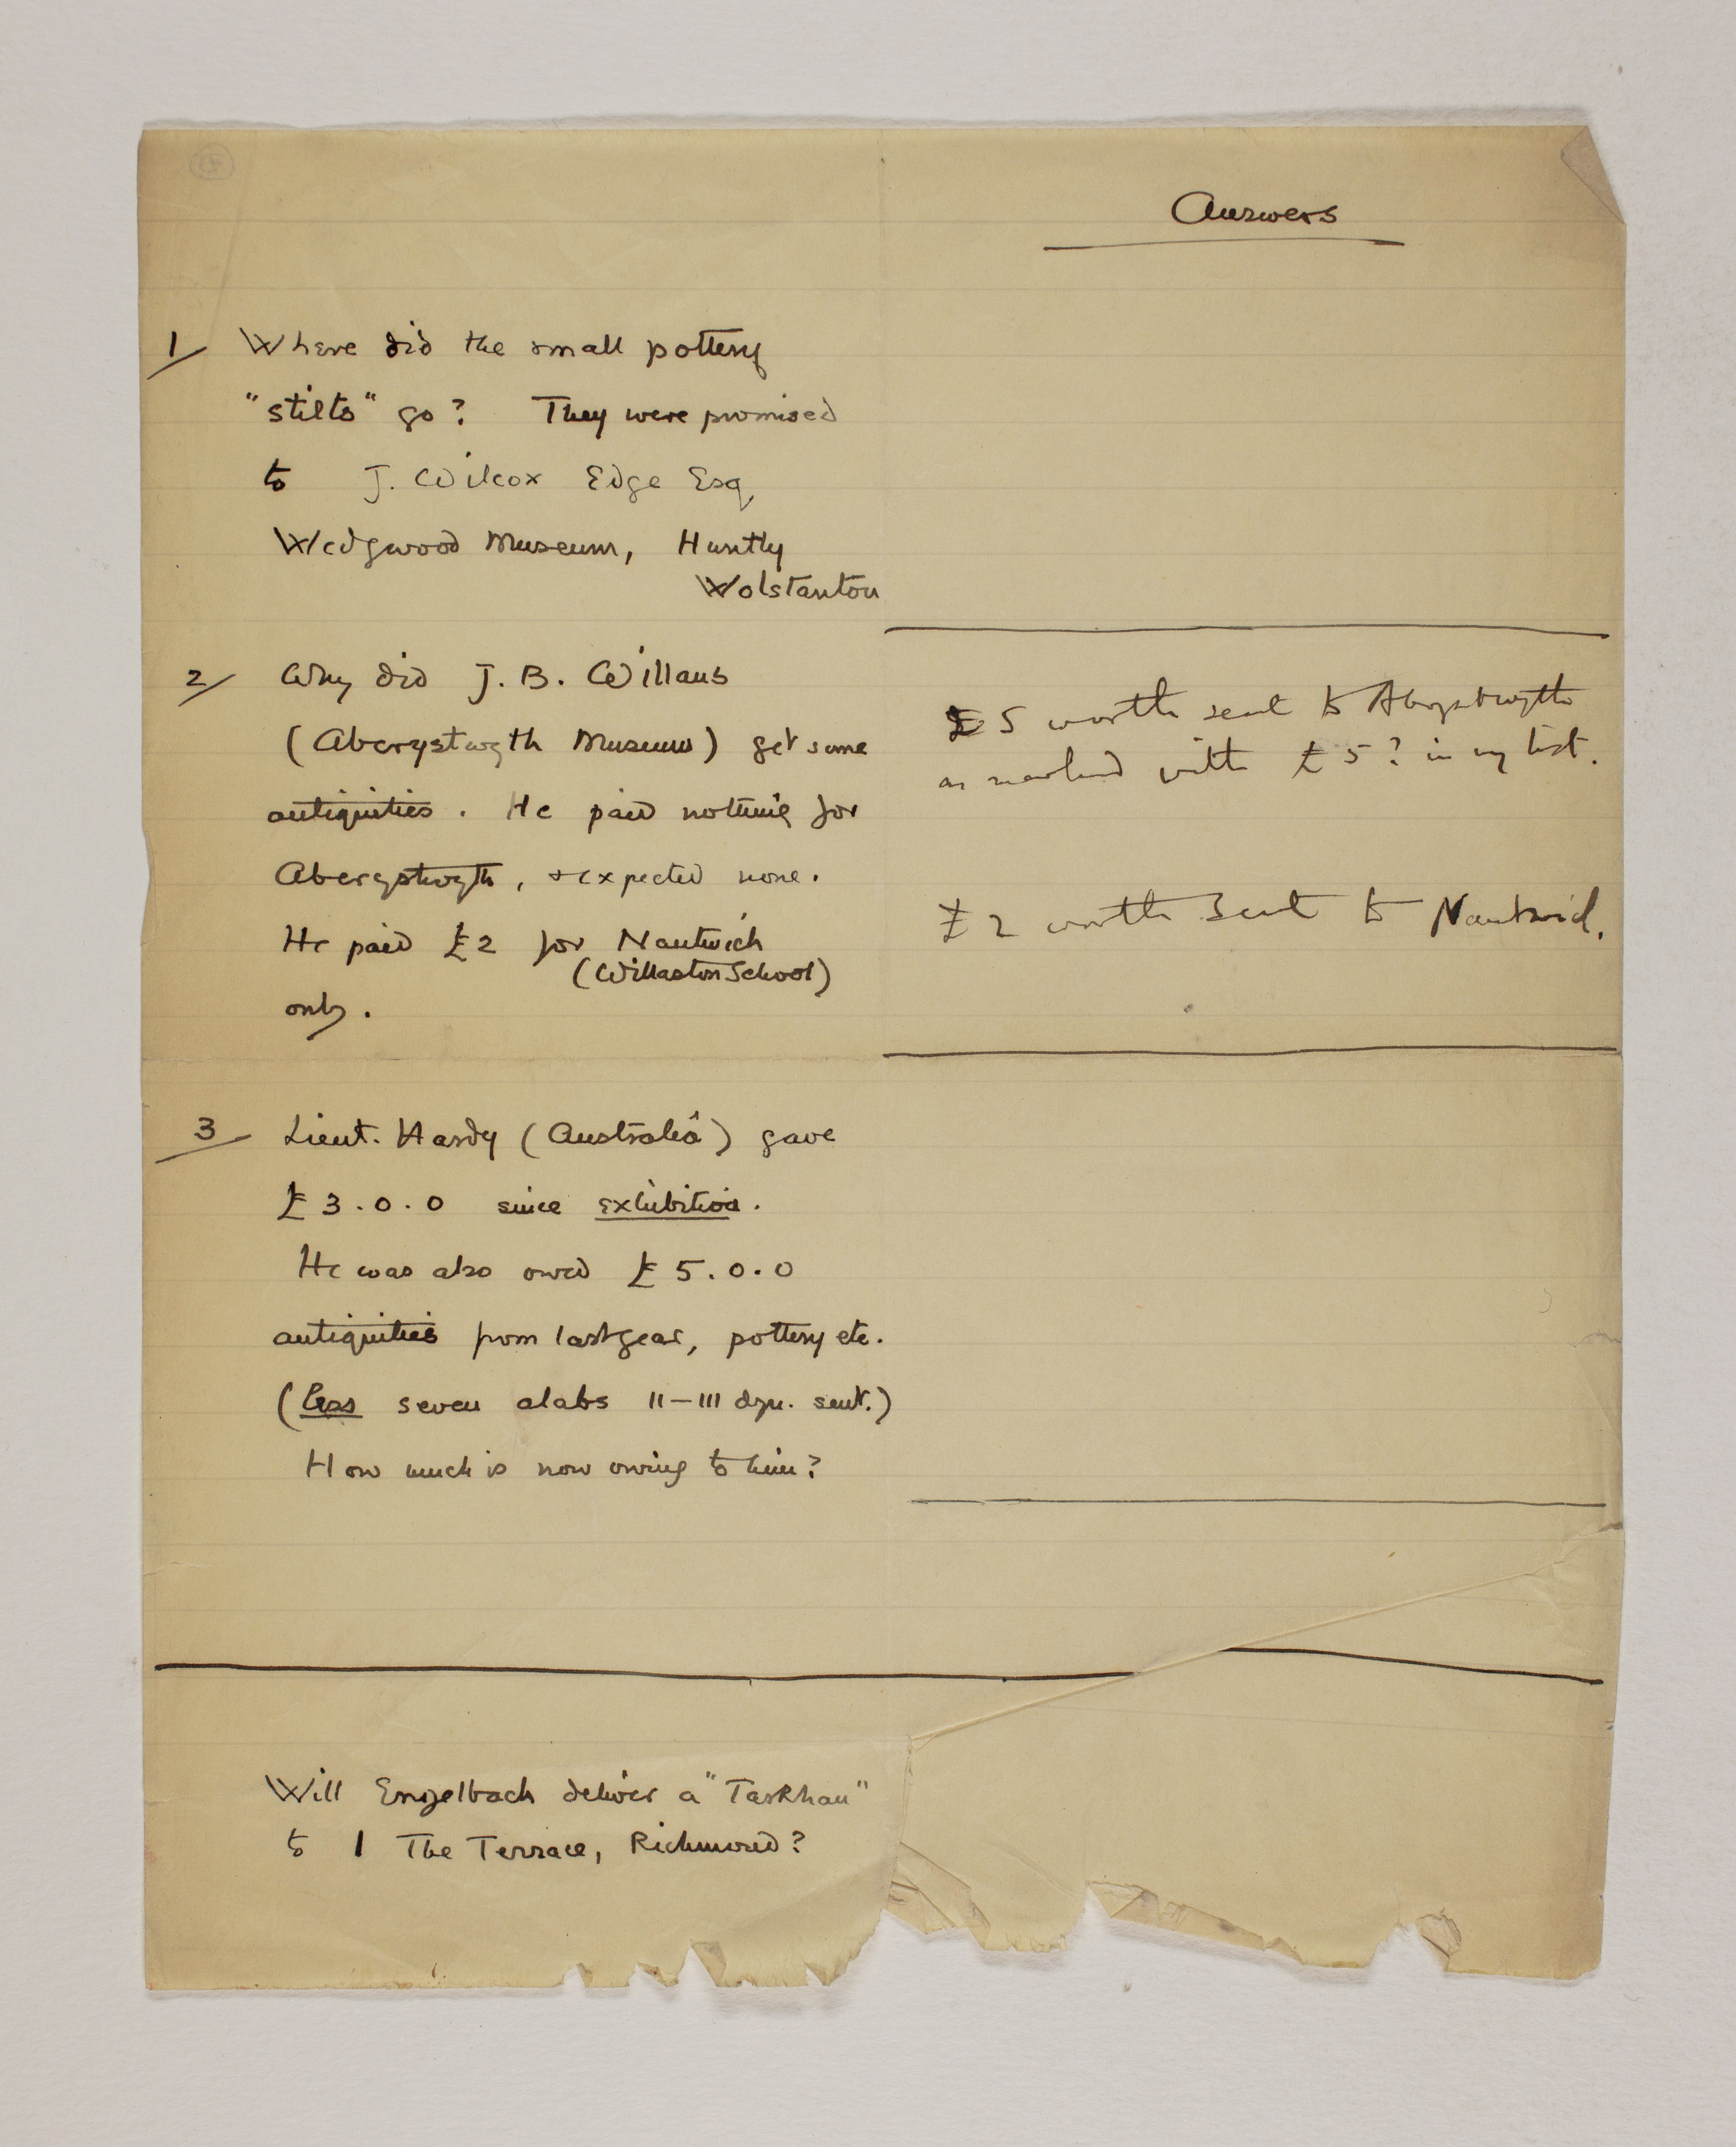 Answers
1/ Where did the small pottery
"stilts" go? They were promised
to J. Wilcox Edge Esq,
Wedgwood Museum, Huntly
Wolstanton
2/ Why did J. B. Willans
(Aberystwyth Museum) get some
antiquities. He paid nothing for
Aberystwyth, & expected none.
He paid £2 for Nantwich
(Willaston School)
only.
£5 worth sent to Aberystwyth
as marked with £5? in my list.
£2 worth sent to Nantwich.
3 Lieut. Hardy (Australia) gave
£3.0.0 since exhibition.
He was also owed £5.0.0
antiquities from last year, pottery etc.
(Less seven alabs II-III dyn. sent.)
How much is now owing to him?
Will Engelbach deliver a "Tarkhan"
to 1 The Terrace, Richmond?